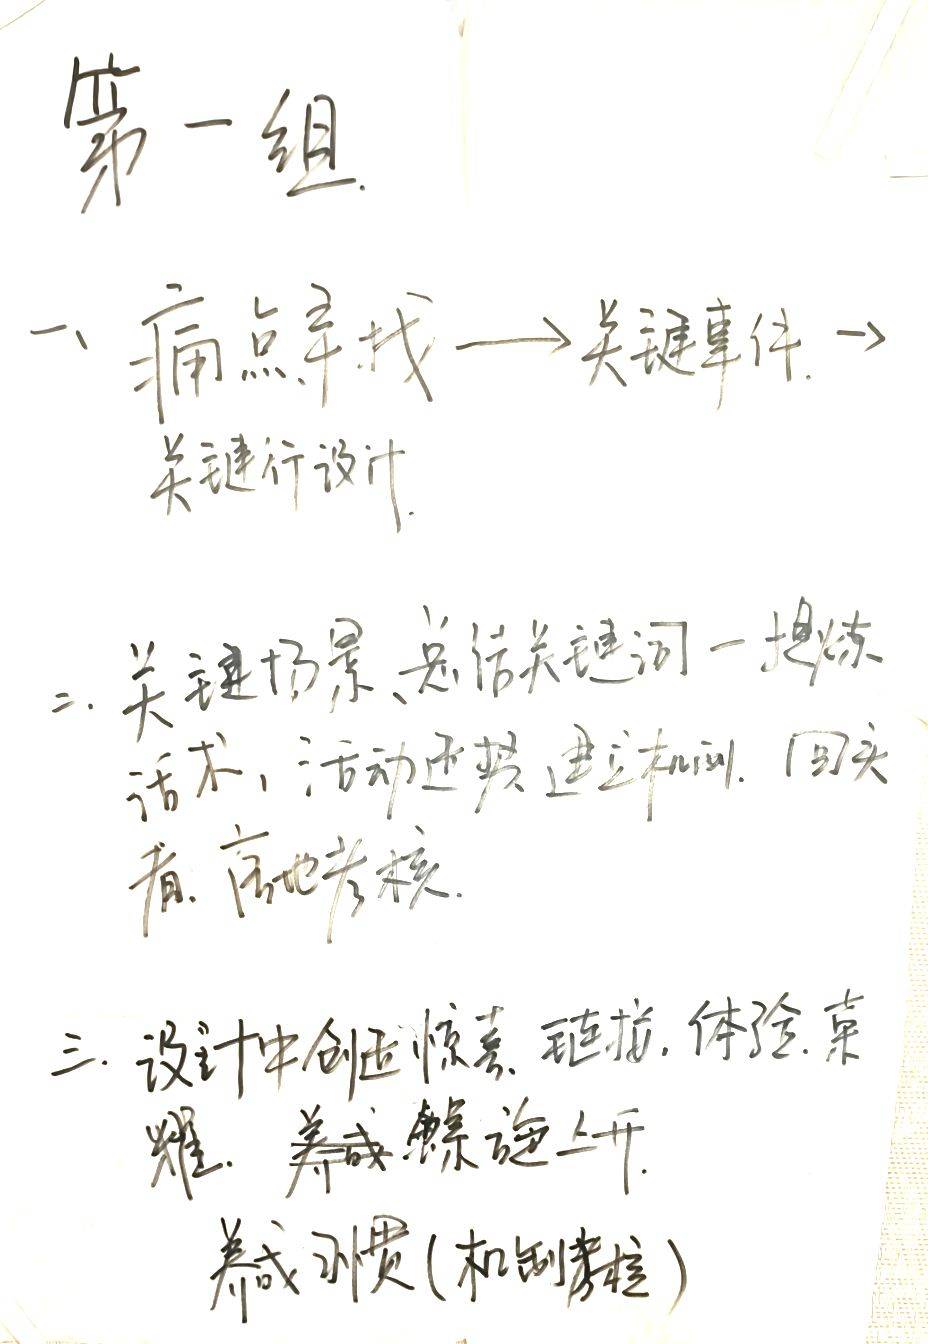 第一组.
一、痛点寻找→关键事件.→
关键行设计.
二.关键场景、总结关键词一提炼
话术,活动还贯建立机制.回头
看.落地考核.
三.设计中创造惊喜.链接.体验.荣
耀.养成螺旋上升.
养成习惯(机制考核)